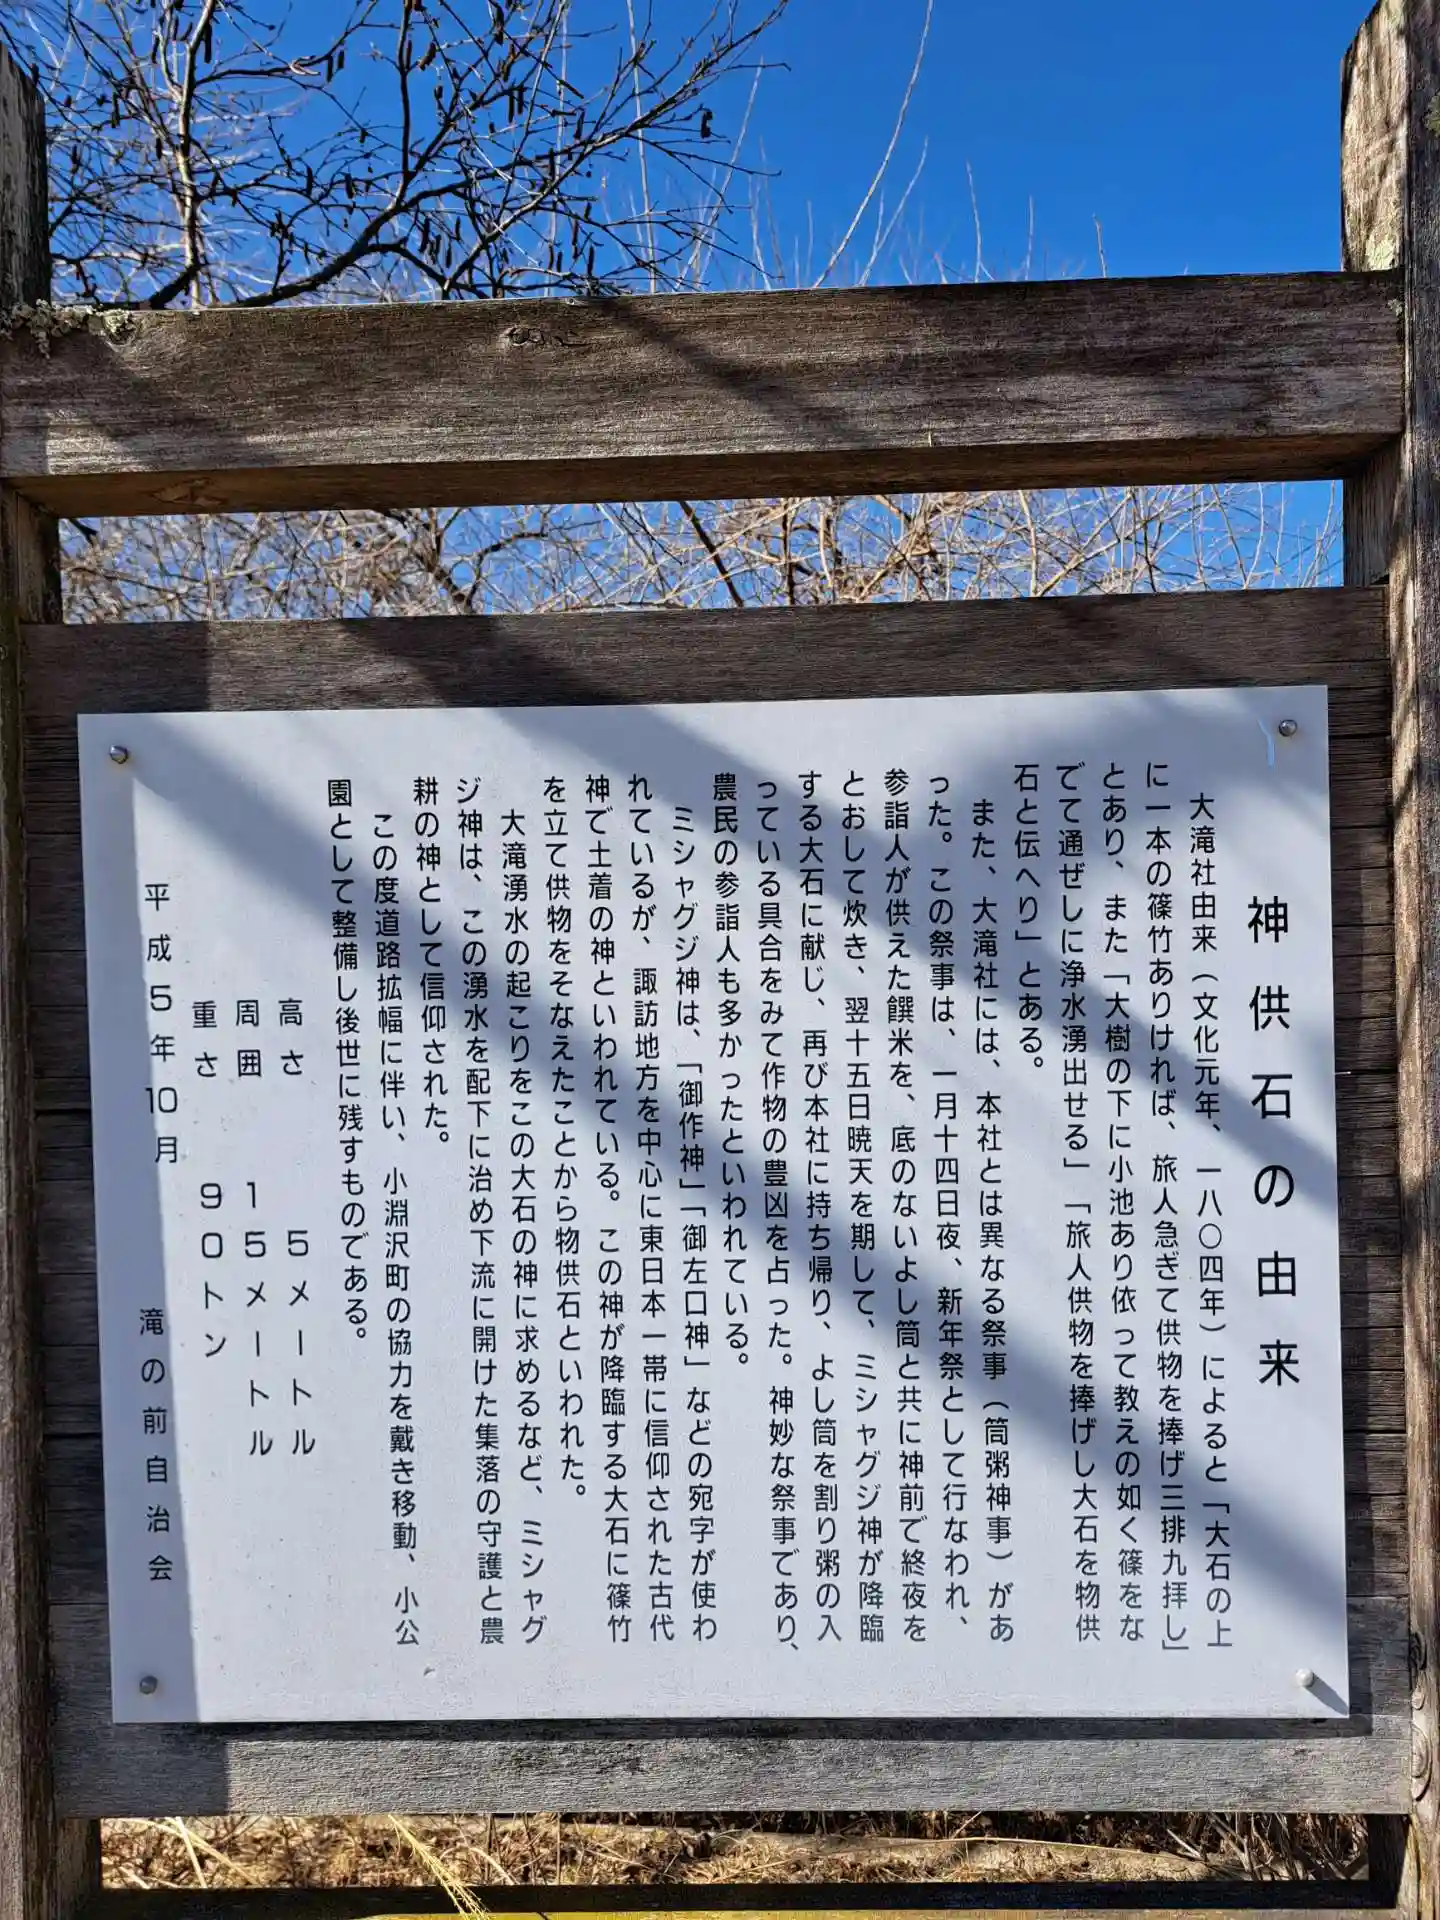 神供石の由来
大滝社由来（文化元年、一八〇四年）によると「大石の上
に一本の篠竹ありければ、旅人急ぎて供物を捧げ三排九拝し」
とあり、また「大樹の下に小池あり依って教えの如く篠をな
でて通ぜしに浄水湧出せる」「旅人供物を捧げし大石を物供
石と伝へり」とある。
また、大滝社には、本社とは異なる祭事（筒粥神事）があ
った。この祭事は、一月十四日夜、新年祭として行なわれ、
参詣人が供えた饌米を、底のないよし筒と共に神前で終夜を
とおして炊き、翌十五日暁天を期して、ミシャグジ神が降臨
する大石に献じ、再び本社に持ち帰り、よし筒を割り粥の入
っている具合をみて作物の豊凶を占った。神妙な祭事であり、
農民の参詣人も多かったといわれている。
ミシャグジ神は、「御作神」「御左口神」などの宛字が使わ
れているが、諏訪地方を中心に東日本一帯に信仰された古代
神で土着の神といわれている。この神が降臨する大石に篠竹
を立て供物をそなえたことから物供石といわれた。
大滝湧水の起こりをこの大石の神に求めるなど、ミシャグ
ジ神は、この湧水を配下に治め下流に開けた集落の守護と農
耕の神として信仰された。
この度道路拡幅に伴い、小淵沢町の協力を戴き移動、小公
園として整備し後世に残すものである。
高さ　５メートル
周囲　１５メートル
重さ　９０トン
平成５年１０月
滝の前自治会